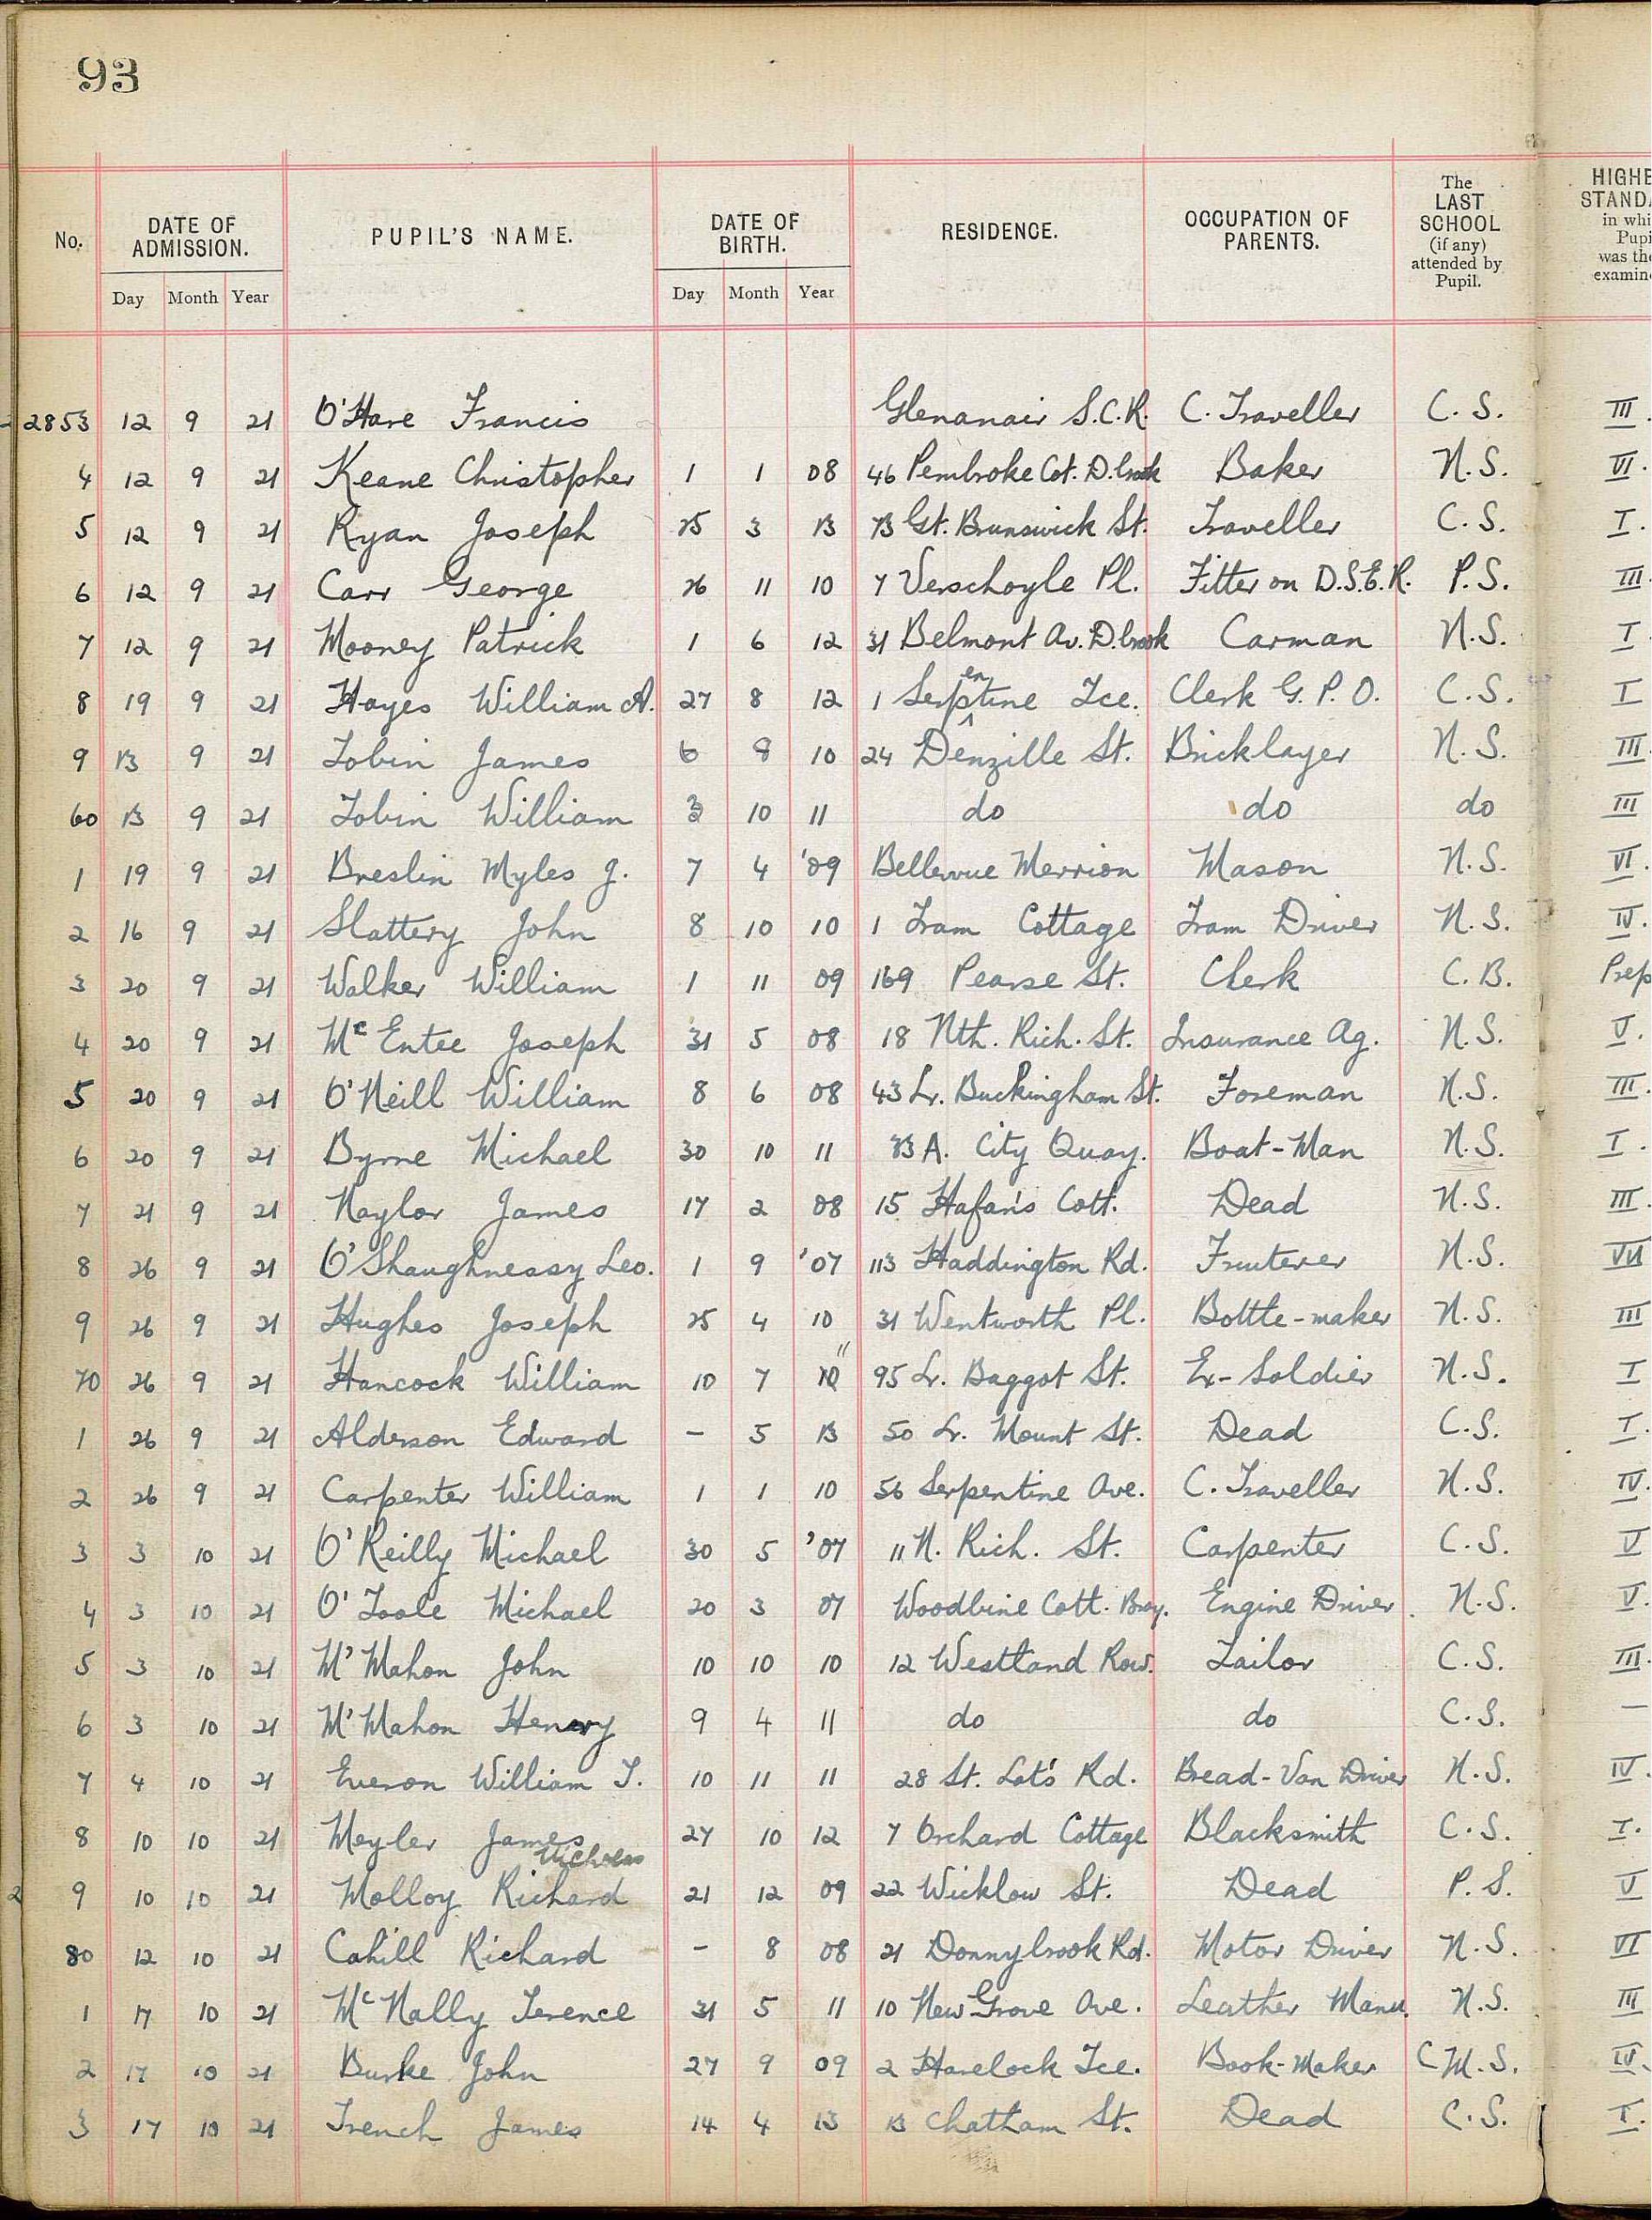 93
No. DATE OF ADMISSION. PUPIL'S NAME. DATE OF BIRTH. RESIDENCE. OCCUPATION OF PARENTS. The LAST SCHOOL (if any) attended by Pupil. HIGHE STANDA in whi Pupi was the examin
Day Month Year Day Month Year
2853 12 9 21 O'Hare Francis Glenanair S.C.R. C. Traveller C. S. III.
4 12 9 21 Keane Christopher 1 1 08 46 Pembroke Cot. D.brook Baker N.S. VI.
5 12 9 21 Ryan Joseph 25 3 13 73 Gt. Brunswick St. Traveller C.S. I.
6 12 9 21 Carr George 26 11 10 7 Verschoyle Pl. Fitter on D.S.E.R. P.S. III
7 12 9 21 Mooney Patrick 1 6 12 31 Belmont Av. D.brook Carman N.S. I
8 19 9 21 Hayes William A. 27 8 12 1 Serpentine Tce. Clerk G. P. O. C.S. I
9 13 9 21 Tobin James 6 8 10 24 Denzille St. Bricklayer N.S. III
60 13 9 21 Tobin William 3 10 11 do do do III
1 19 9 21 Breslin Myles J. 7 4 '09 Bellevue Merrion Mason N.S. VI.
2 16 9 21 Slattery John 8 10 10 1 Tram Cottage Tram Driver N.S. IV.
3 20 9 21 Walker William 1 11 09 169 Pearse St. Clerk C.B. Prep
4 20 9 21 McEntee Joseph 31 5 08 18 Nth. Rich. St. Insurance Ag. N.S. V.
5 20 9 21 O'Neill William 8 6 08 43 Lr. Buckingham St. Foreman N.S. III.
6 20 9 21 Byrne Michael 30 10 11 A. City Quay. Boat-Man N.S. I.
7 21 9 21 Naylor James 17 2 08 15 Cott. Dead N.S. III.
8 26 9 21 O'Shaughnessy Leo. 1 9 '07 113 Haddington Rd. Fruiterer N.S. VII
9 26 9 21 Hughes Joseph 25 4 10 31 Wentworth Pl. Bottle-maker N.S. III
70 26 9 21 Hancock William 10 7 11 95 Lr. Baggot St. Ex-Soldier N.S. I
1 26 9 21 Alderson Edward – 5 13 50 Lr. Mount St. Dead C.S. I.
2 26 9 21 Carpenter William 1 1 10 56 Serpentine Ave. C. Traveller N.S. IV.
3 3 10 21 O'Reilly Michael 30 5 '07 11 N. Rich. St. Carpenter C.S. V
4 3 10 21 O'Toole Michael 20 3 07 Woodbine Cott. Bray. Engine Driver. N.S. V.
5 3 10 21 M'Mahon John 10 10 10 12 Westland Row. Tailor C.S. III.
6 3 10 21 M'Mahon Henry 9 4 11 do do C.S. —
7 4 10 21 Everon William T. 10 11 11 28 St. Lot's Rd. Bread-Van Driver N.S. IV.
8 10 10 21 Meyler James 27 10 12 7 Orchard Cottage Blacksmith C.S. I.
2 9 10 10 21 Molloy Richard 21 12 09 22 Wicklow St. Dead P.S. V
80 12 10 21 Cahill Richard – 8 08 21 Donnybrook Rd. Motor Driver N.S. VI
1 17 10 21 McNally Terence 31 5 11 10 New Grove Ave. Leather Manu. N.S. III
2 17 10 21 Burke John 27 9 09 2 Havelock Tce. Book-Maker C M.S. IV.
3 17 10 21 Trench James 14 4 13 13 Chatham St. Dead C.S. I.